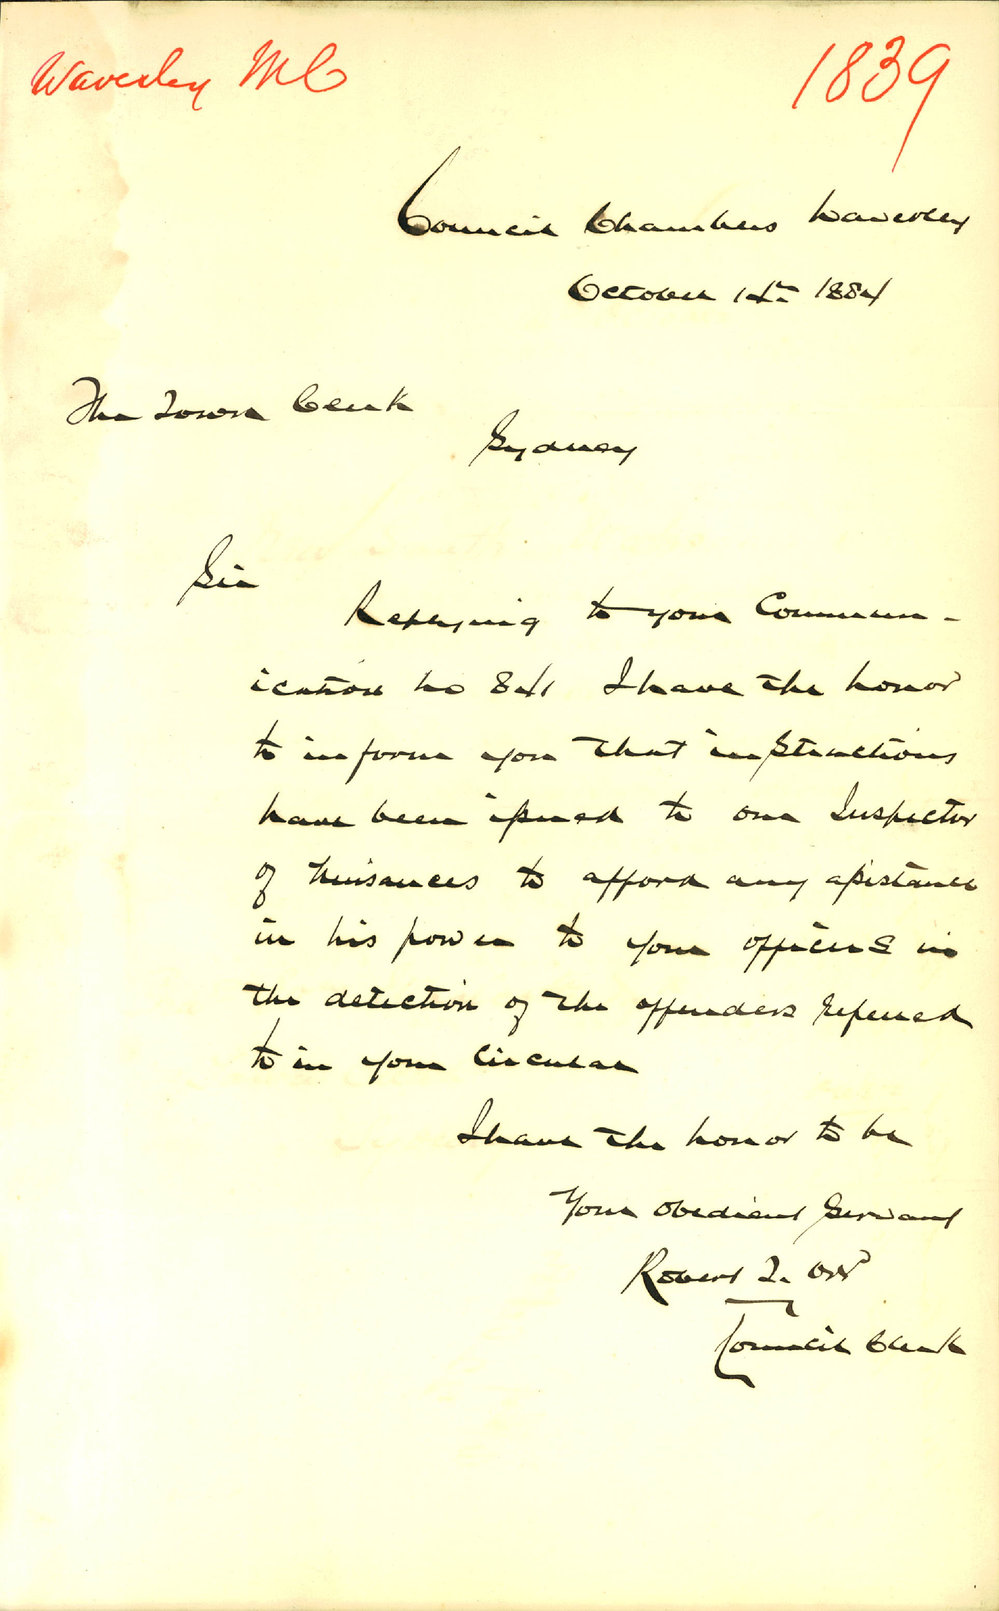 Waverley MC
1839
Council Chambers Waverley
October 14th 1884
The Town Clerk
Sydney
Sir
Replying to your Commun-
ication No 841 I have the honor
to inform you that instructions
have been issued to our Inspector
of Nuisances to afford any assistance
in his power to your officers in
the detection of the offenders referred
to in your Circular
I have the honor to be
Your obedient Servant
Robert T. Orr
Council Clerk